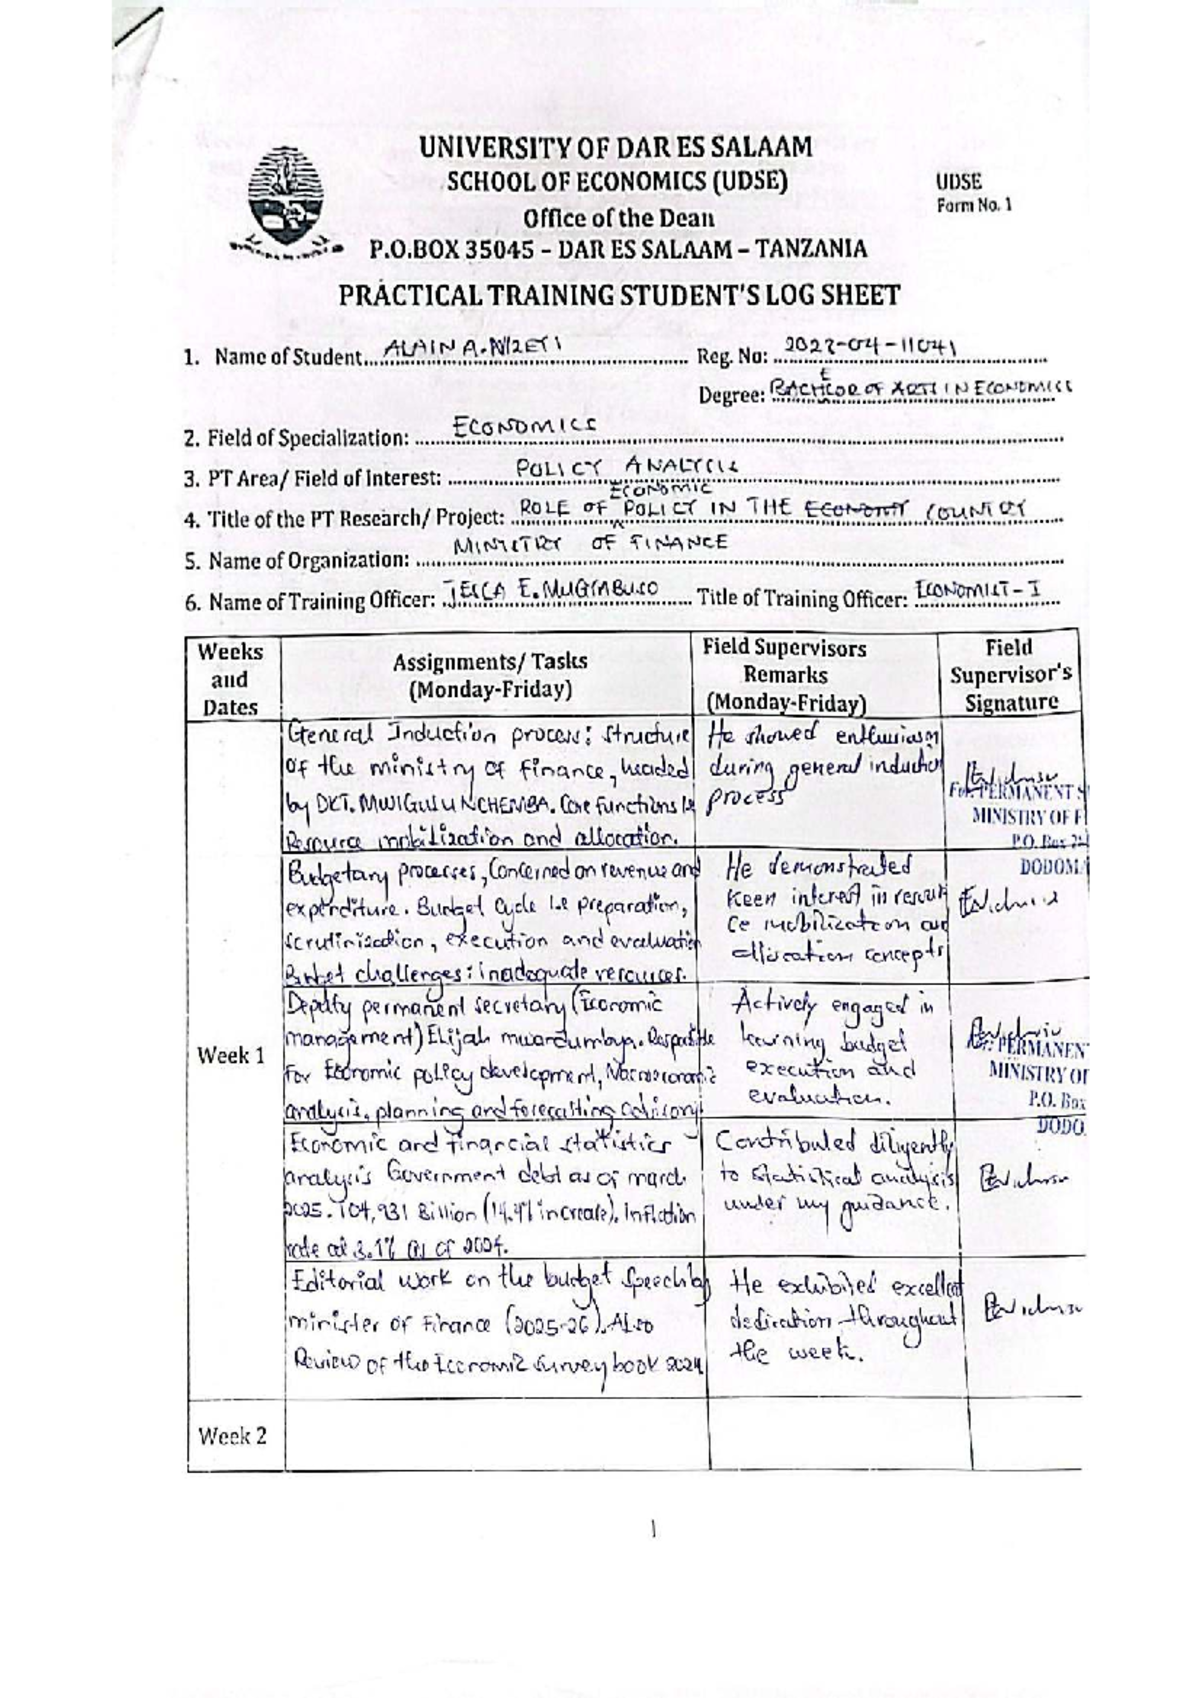 UNIVERSITY OF DAR ES SALAAM
SCHOOL OF ECONOMICS (UDSE)
Office of the Dean
P.O.BOX 35045 – DAR ES SALAAM – TANZANIA
UDSE
Form No. 1
PRACTICAL TRAINING STUDENT'S LOG SHEET
1. Name of Student... ALAIN A. Reg. No: 2023-04-11041
Degree: BACHELOR OF ARTS IN ECONOMICS
2. Field of Specialization: ECONOMICS
3. PT Area/ Field of Interest: POLICY ANALYSIS
4. Title of the PT Research/ Project: ROLE OF ECONOMIC POLICY IN THE ECONOMY COUNTRY
5. Name of Organization: MINISTRY OF FINANCE
6. Name of Training Officer: E. Title of Training Officer: ECONOMIST - I
Weeks and Dates
Assignments/ Tasks (Monday-Friday)
Field Supervisors Remarks (Monday-Friday)
Field Supervisor's Signature
General Induction process: Structure
of the ministry of finance, headed
by DKT. MWIGULU NCHEMBA. Core functions is
Resource mobilization and allocation.
He showed enthusiasm
during general induction
process
For: PERMANENT S
MINISTRY OF F
P.O. Box
DODOMA
Budgetary processes, Concerned on revenue and
expenditure. Budget Cycle i.e preparation,
scrutinisation, execution and evaluation
Budget challenges: inadequate resources.
He demonstrated
keen interest in resour
ce mobilization and
allocation concepts
Week 1
Deputy permanent secretary (Economic
management) Elijah mwandumbya. Responsible
for Economic policy development, Macroeconomic
analysis, planning and forecasting advisory
Actively engaged in
learning budget
execution and
evaluation.
PERMANEN
MINISTRY OF
P.O. Box
DODO
Economic and financial statistics
analysis Government debt as of march
2025. 104,931 Billion (14.4% increase). Inflation
rate at 3.1% as of 2024.
Contributed diligently
to statistical analysis
under my guidance.
Editorial work on the budget speech by
minister of Finance (2025-26). Also
Review of the Economic survey book 2024
He exhibited excellent
dedication throughout
the week.
Week 2
1